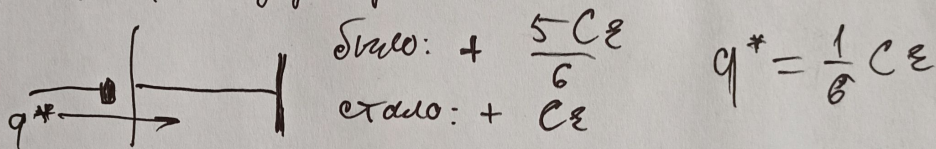 было: + 5Cε/6
стало: + Cε
q* = 1/6 Cε
q*